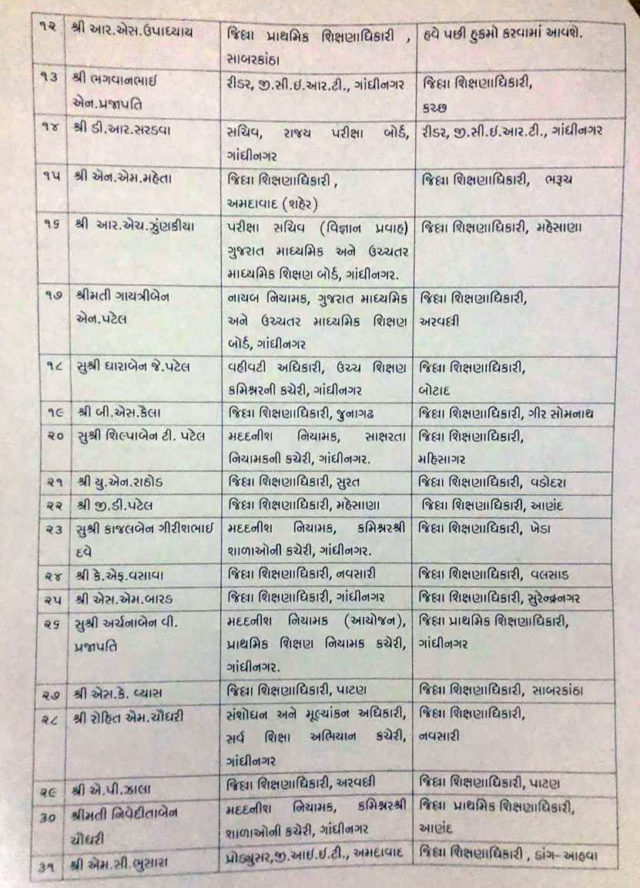 ૧૨ શ્રી આર.એસ.ઉપાધ્યાય જિલ્લા પ્રાથમિક શિક્ષણાધિકારી , હવે પછી હુકમો કરવામાં આવશે.
સાબરકાંઠા
૧૩ શ્રી ભગવાનભાઈ રીડર, જી.સી.ઇ.આર.ટી., ગાંધીનગર જિલ્લા શિક્ષણાધિકારી,
એન.પ્રજાપતિ કચ્છ
૧૪ શ્રી ડી.આર.સરડવા સચિવ, રાજય પરીક્ષા બોર્ડ, રીડર, જી.સી.ઇ.આર.ટી., ગાંધીનગર
ગાંધીનગર
૧૫ શ્રી એન.એમ.મહેતા જિલ્લા શિક્ષણાધિકારી , જિલ્લા શિક્ષણાધિકારી, ભરૂચ
અમદાવાદ (શહેર)
૧૬ શ્રી આર.એચ.ઝુંણકીયા પરીક્ષા સચિવ (વિજ્ઞાન પ્રવાહ) જિલ્લા શિક્ષણાધિકારી, મહેસાણા
ગુજરાત માધ્યમિક અને ઉચ્ચતર
માધ્યમિક શિક્ષણ બોર્ડ, ગાંધીનગર.
૧૭ શ્રીમતી ગાયત્રીબેન નાયબ નિયામક, ગુજરાત માધ્યમિક જિલ્લા શિક્ષણાધિકારી,
એન.પટેલ અને ઉચ્ચતર માધ્યમિક શિક્ષણ અરવલ્લી
બોર્ડ, ગાંધીનગર
૧૮ સુશ્રી ધારાબેન જે.પટેલ વહીવટી અધિકારી, ઉચ્ચ શિક્ષણ જિલ્લા શિક્ષણાધિકારી,
કમિશ્નરની કચેરી, ગાંધીનગર બોટાદ
૧૯ શ્રી બી.એસ.કૈલા જિલ્લા શિક્ષણાધિકારી, જુનાગઢ જિલ્લા શિક્ષણાધિકારી, ગીર સોમનાથ
૨૦ સુશ્રી શિલ્પાબેન ટી. પટેલ મદદનીશ નિયામક, સાક્ષરતા જિલ્લા શિક્ષણાધિકારી,
નિયામકની કચેરી, ગાંધીનગર. મહિસાગર
૨૧ શ્રી યુ.એન.રાઠોડ જિલ્લા શિક્ષણાધિકારી, સુરત જિલ્લા શિક્ષણાધિકારી, વડોદરા
૨૨ શ્રી જી.ડી.પટેલ જિલ્લા શિક્ષણાધિકારી, મહેસાણા જિલ્લા શિક્ષણાધિકારી, આણંદ
૨૩ સુશ્રી કાજલબેન ગીરીશભાઈ મદદનીશ નિયામક, કમિશ્નરશ્રી જિલ્લા શિક્ષણાધિકારી, ખેડા
દવે શાળાઓની કચેરી, ગાંધીનગર.
૨૪ શ્રી કે.એફ.વસાવા જિલ્લા શિક્ષણાધિકારી, નવસારી જિલ્લા શિક્ષણાધિકારી, વલસાડ
૨૫ શ્રી એસ.એમ.બારડ જિલ્લા શિક્ષણાધિકારી, ગાંધીનગર જિલ્લા શિક્ષણાધિકારી, સુરેન્દ્રનગર
૨૬ સુશ્રી અર્ચનાબેન વી. મદદનીશ નિયામક (આયોજન), જિલ્લા પ્રાથમિક શિક્ષણાધિકારી,
પ્રજાપતિ પ્રાથમિક શિક્ષણ નિયામક કચેરી, ગાંધીનગર
ગાંધીનગર.
૨૭ શ્રી એસ.કે. વ્યાસ જિલ્લા શિક્ષણાધિકારી, પાટણ જિલ્લા શિક્ષણાધિકારી, સાબરકાંઠા
૨૮ શ્રી રોહિત એમ.ચૌધરી સંશોધન અને મૂલ્યાંકન અધિકારી, જિલ્લા શિક્ષણાધિકારી,
સર્વ શિક્ષા અભિયાન કચેરી, નવસારી
ગાંધીનગર
૨૯ શ્રી એ.પી.ઝાલા જિલ્લા શિક્ષણાધિકારી, અરવલ્લી જિલ્લા શિક્ષણાધિકારી, પાટણ
૩૦ શ્રીમતી નિવેદીતાબેન મદદનીશ નિયામક, કમિશ્નરશ્રી જિલ્લા પ્રાથમિક શિક્ષણાધિકારી,
ચૌધરી શાળાઓની કચેરી, ગાંધીનગર આણંદ
૩૧ શ્રી એમ.સી.ભુસારા પ્રોડ્યુસર,જી.આઇ.ઇ.ટી., અમદાવાદ જિલ્લા શિક્ષણાધિકારી , ડાંગ- આહવા